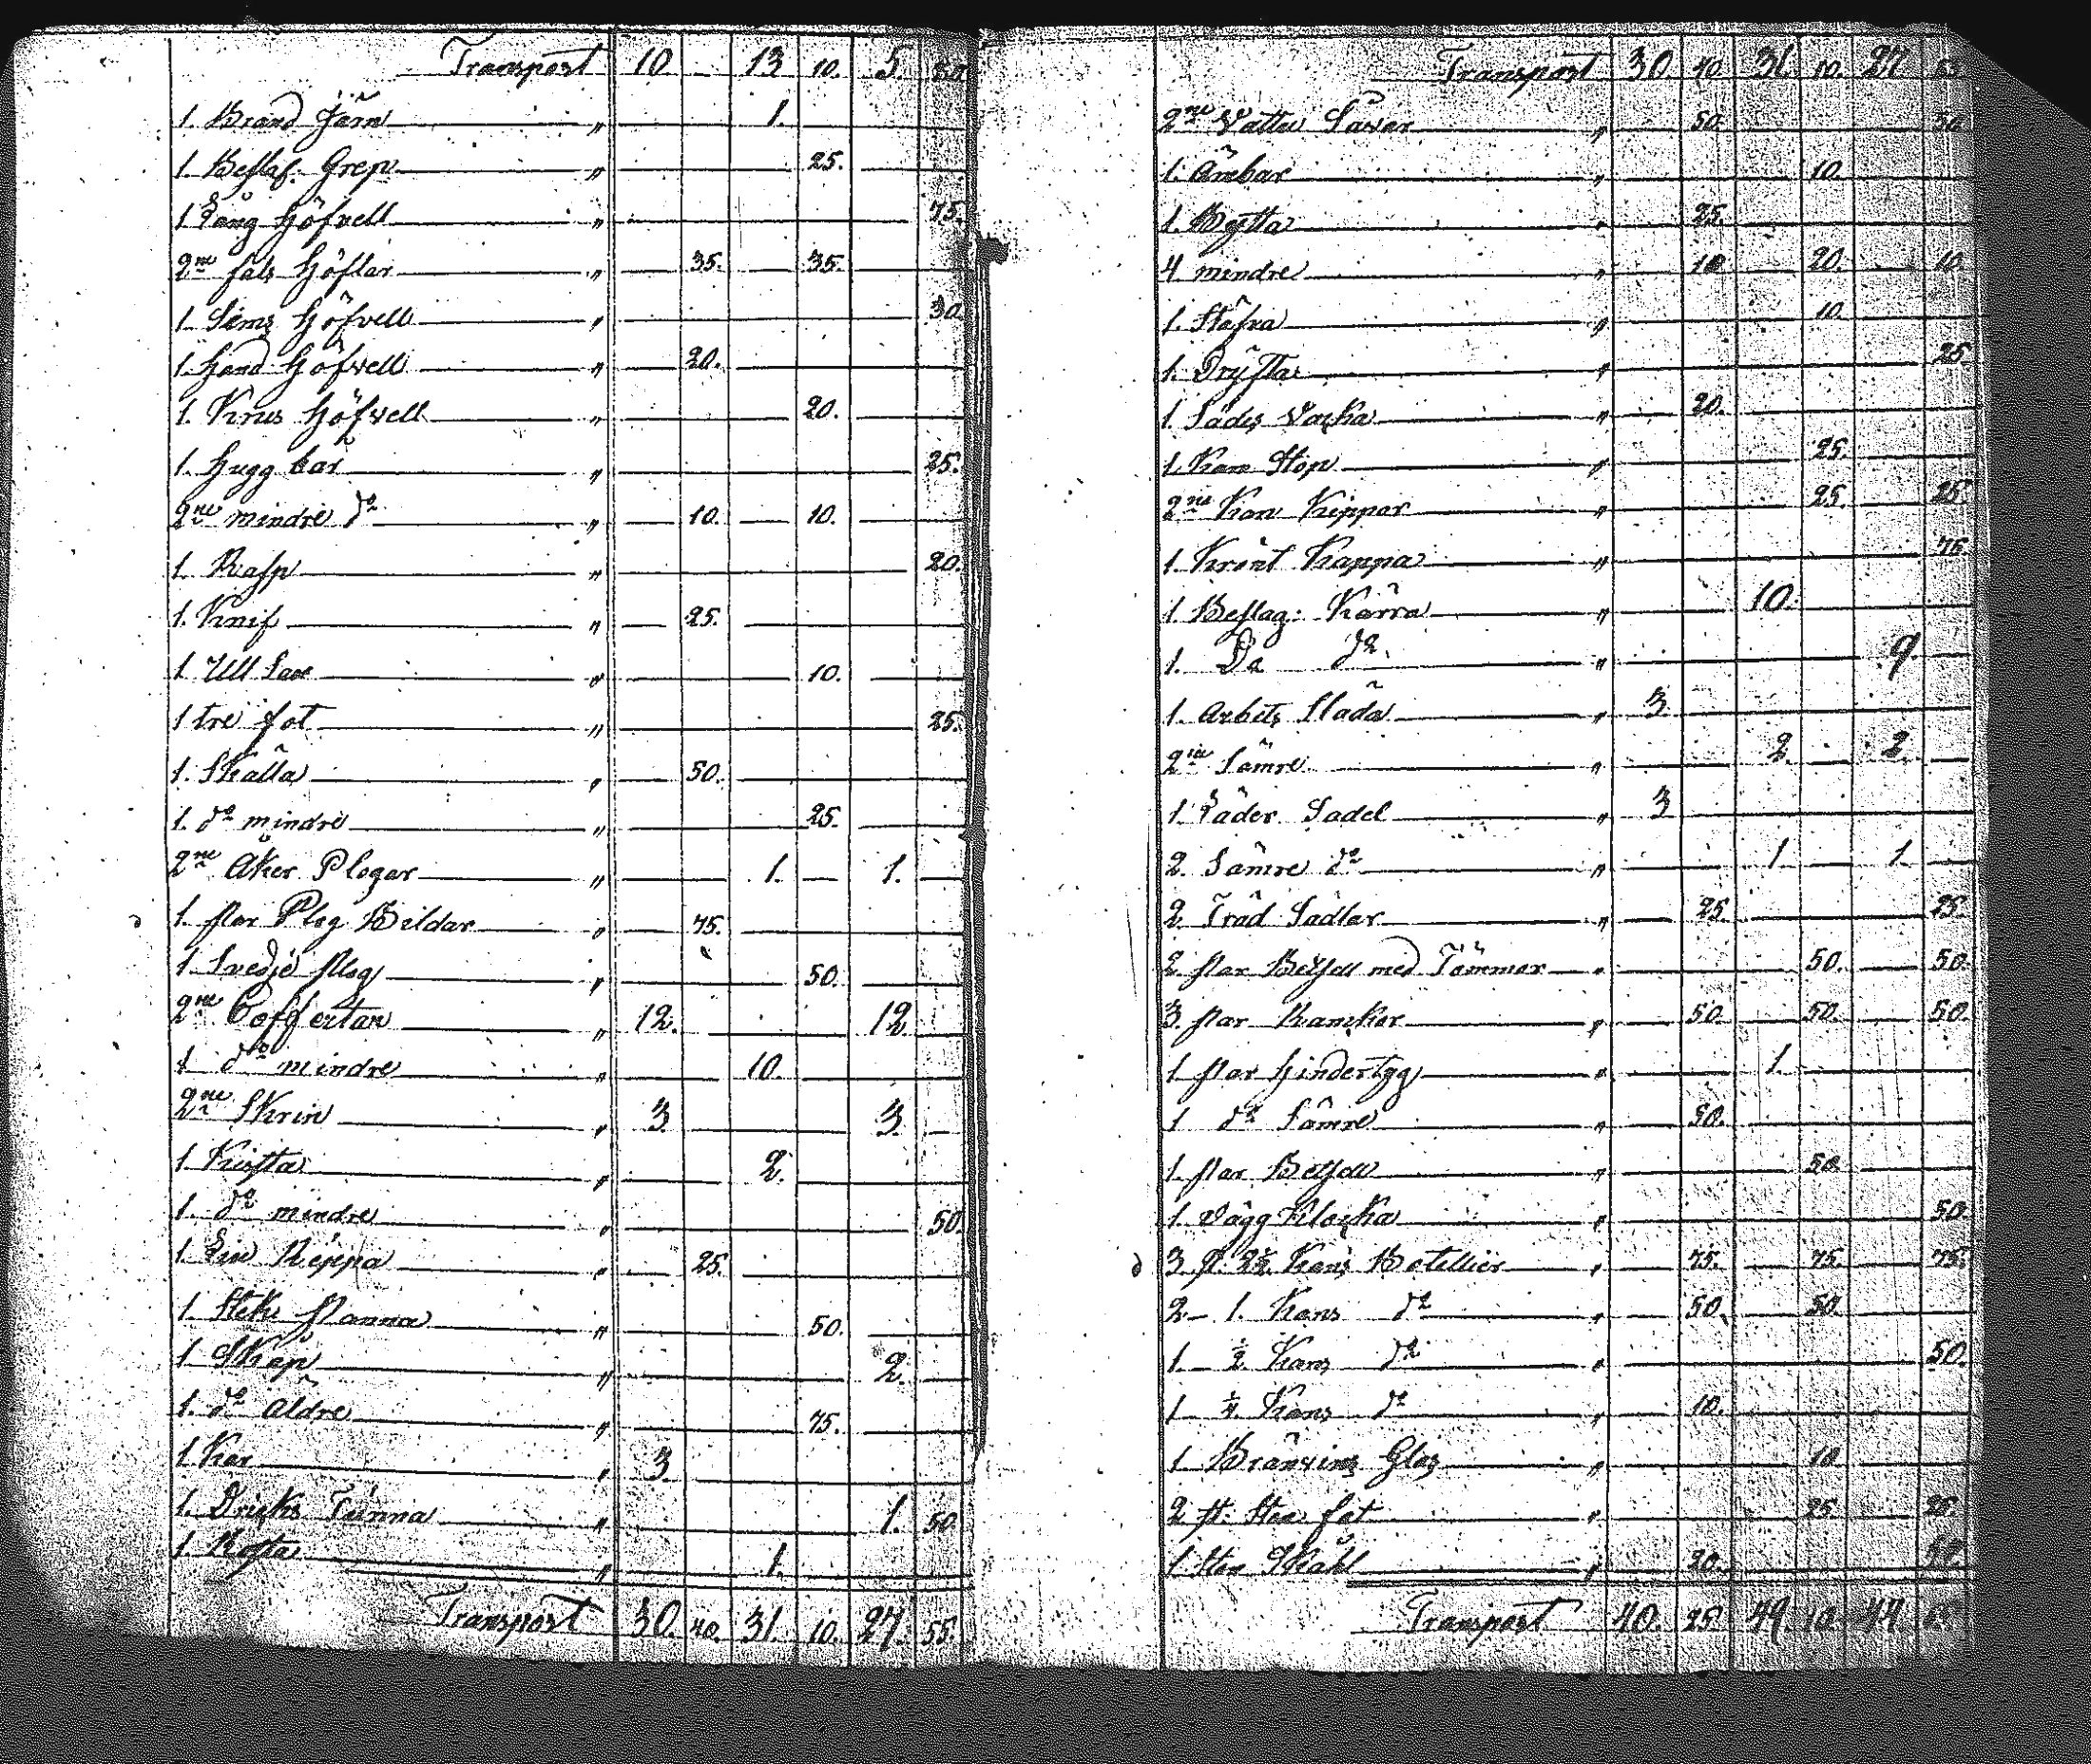 Transport 10. 13 10. 5. 80.
1. Brand Järn " 1.
1. Beslag: Grep " 25.
1 Lång Höfvell " 75.
2ne fals Höflar " 35. 35.
1 Sims Höfvell " 30
1. Hand Höfvell " 20.
1. Krus Höfvell " 20.
1. Hugg bar " 25.
2ne mindre do " 10. 10.
1. Rasp " 20.
1. Knif " 25.
1 Ull Sax " 10.
1 tre fot " 25.
1. Skålla " 50.
1. do mindre " 25.
2ne Åker Plogar " 1. 1.
1. par Plog Bildar " 75.
1. Svedje plog " 50.
2ne Coffertar " 12. 12
1 do mindre " 10.
2ne Skrin " 3. 3.
1. Kista " 2.
1. do mindre " 50.
1. Lin Käppa " 25.
1. Stek Panna " 50.
1 Skåp " 2.
1. do äldre " 75.
1 Kar " 3
1. Dricks Tunna " 1. 50
1. " 1.
Transport 30. 40. 31. 10. 27. 55.
Transport 30. 40. 31. 10. 27 55
2ne Vatten Såar " 50. 50
1. Ämbar " 10.
1. Bytta " 25.
4 mindre " 10. 20. 10.
1. Stäfva " 10
1. Dryfta " 25
1 Sädes Vacka " 20.
1 Kan Stop " 25.
2ne Kan Kippor " 25. 25.
1. Krönt Kappa " 75.
1 Beslag: Kärra " 10.
1. Do do " 9.
1 Arbets Släda " 3.
2ne Sämre " 2. 2.
1 Läder Sadel " 3
2. Sämre do " 1. 1
2 Träd Sadlar " 25. 25.
2 par Betsell med Tömmar " 50. 50.
3 par Rankor " 50. 50. 50.
1 par Hindertyg " 1.
1 do Sämre " 50.
1. par Betsell " 50
1. Vägg Klocka " 50.
3 st: 2½ Kans Botellier " 75. 75. 75.
2 – 1. Kans do " 50. 50.
1. – ½ Kans do " 50.
1 ¼ Kans do " 10.
1 Bränvins Glas " 10
2 st: Sten fat " 25. 25.
1 stor Skåhl " 20. 50
Transport 40. 25. 49. 10. 44. 65.